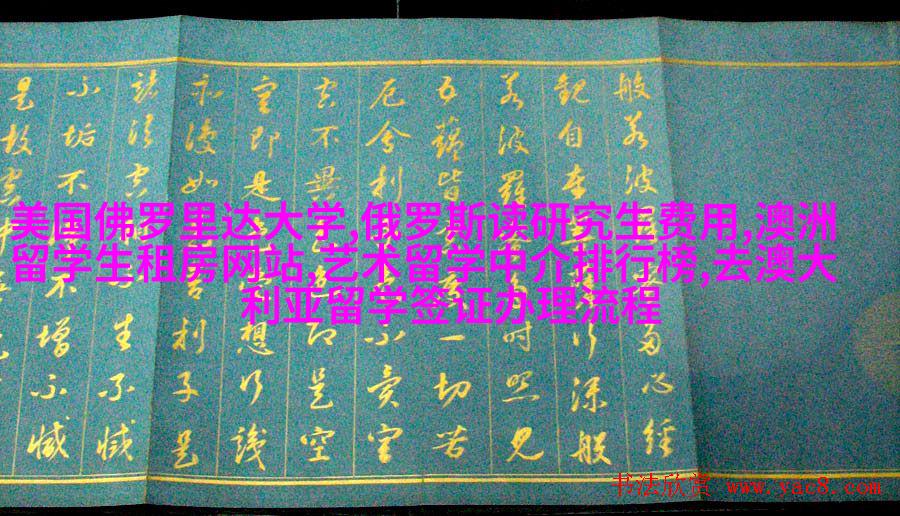 美国佛罗里达大学,俄罗斯读研究生费用,澳洲
留学生租房网站,艺术留学中介排行榜,去澳大
利亚留学签证办理流程
般若波多心経
觀自在行深般
若波羅時照見
五蘊皆度一切苦
厄舍利不異空
空不異即是空
空即是想行識
亦復如舍利子是
諸法空生不滅
不垢不不增不滅
是故空中
书法欣赏 www.yac8.com